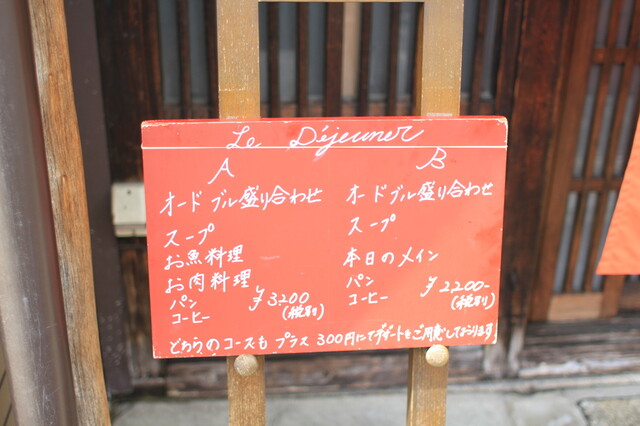 Le Déjeuner
A
オードブル盛り合わせ
スープ
お魚料理
お肉料理
パン
コーヒー
¥3200
(税別)
B
オードブル盛り合わせ
スープ
本日のメイン
パン
コーヒー
¥2200-
(税別)
どちらのコースも プラス 300円にてデザートをご用意しております